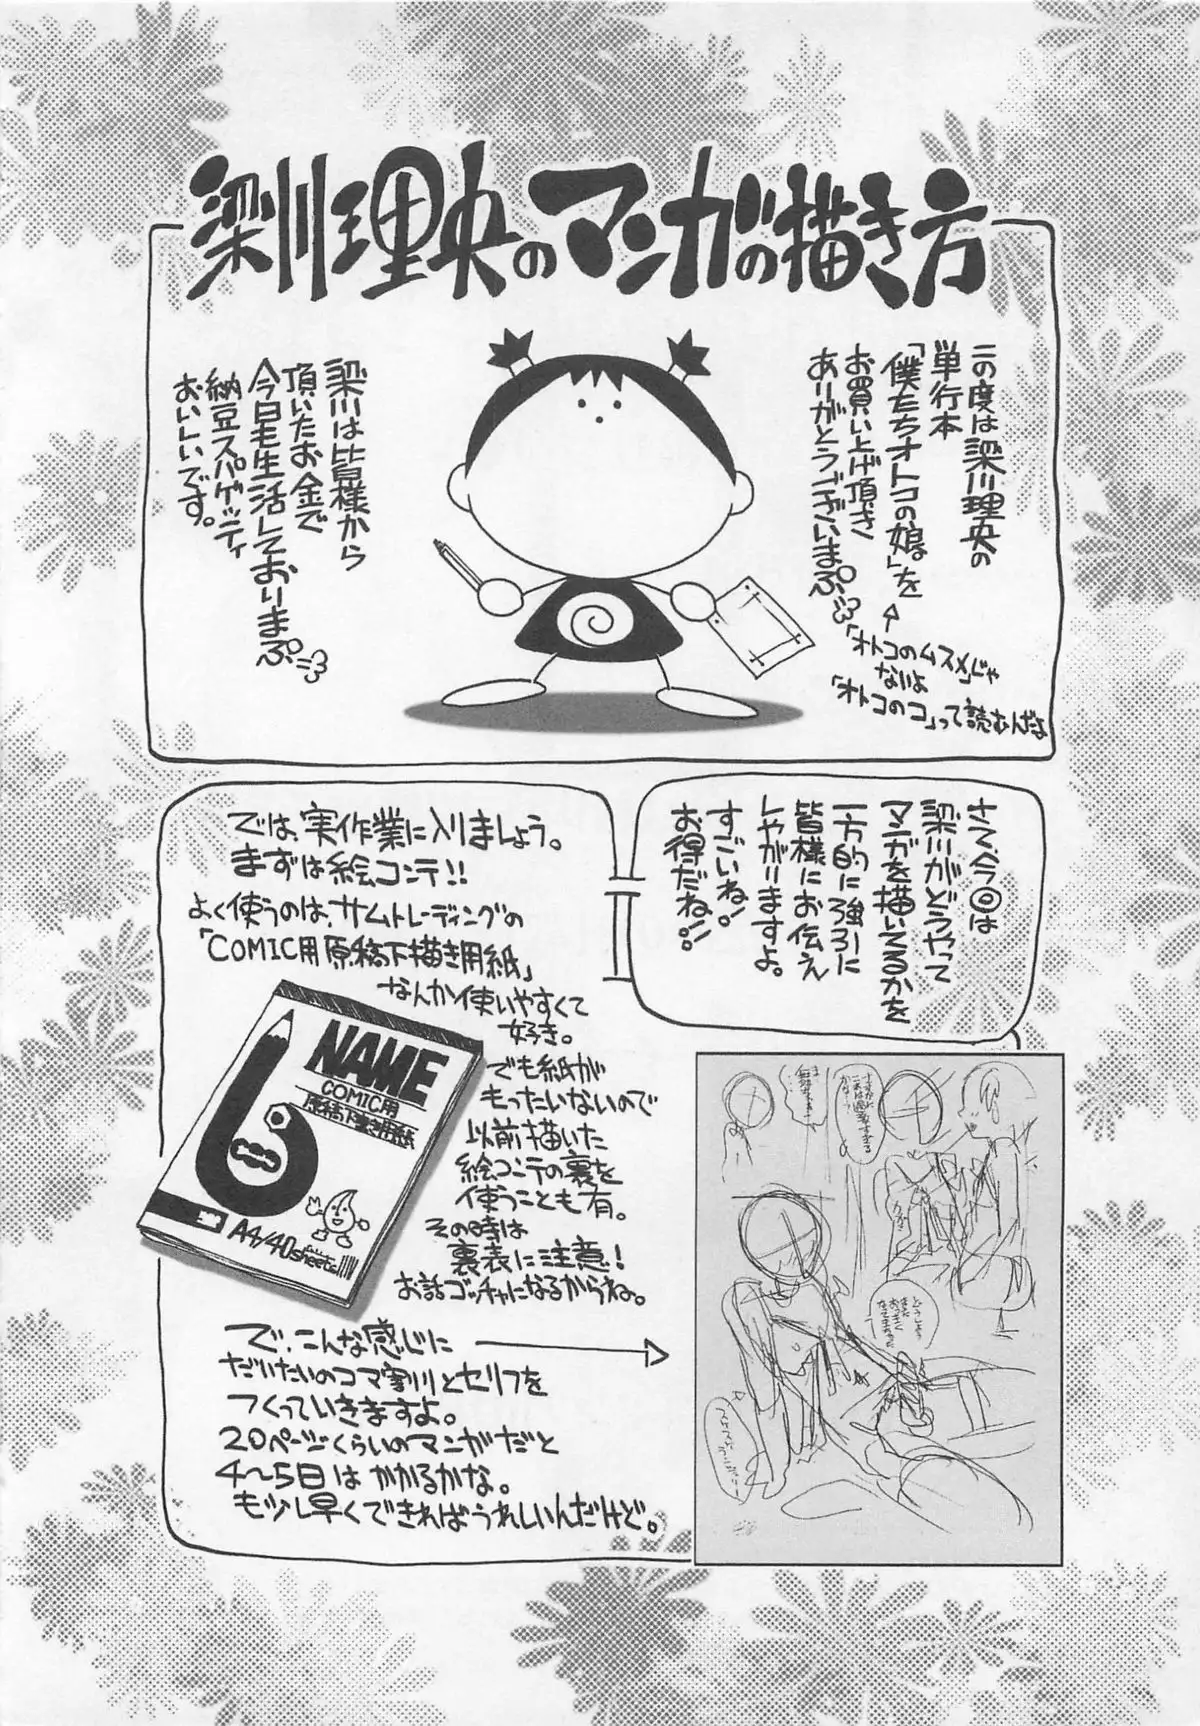 梁川理央のマンガの描き方
この度は梁川理央の
単行本
「僕たちオトコの娘」を
お買い上げ頂き
ありがとうございまぷ。
「オトコのムスメ」じゃ
ないよ
「オトコのコ」って読むんだよ
梁川は皆様から
頂いたお金で
今日も生活しておりまぷ。
納豆スパゲッティ
おいしいです。
さて、今回は
梁川がどうやって
マンガを描いてるかを
一方的に強引に
皆様にお伝え
しやがりますよ。
すごいね!
お得だね!!
では、実作業に入りましょう。
まずは絵コンテ!!
よく使うのは、サムトレーディングの
「COMIC用原稿下描き用紙」
なんか使いやすくて
好き。
でも紙が
もったいないので
以前描いた
絵コンテの裏を
使うことも有。
その時は
裏表に注意!
お話ゴッチャになるからね。
NAME
COMIC用
原稿下書き用紙
A4/40sheets
で、こんな感じに
だいたいのコマ割りとセリフを
つくっていきますよ。
20ページくらいのマンガだと
4〜5日はかかるかな。
も少し早くできればうれしいんだけど。